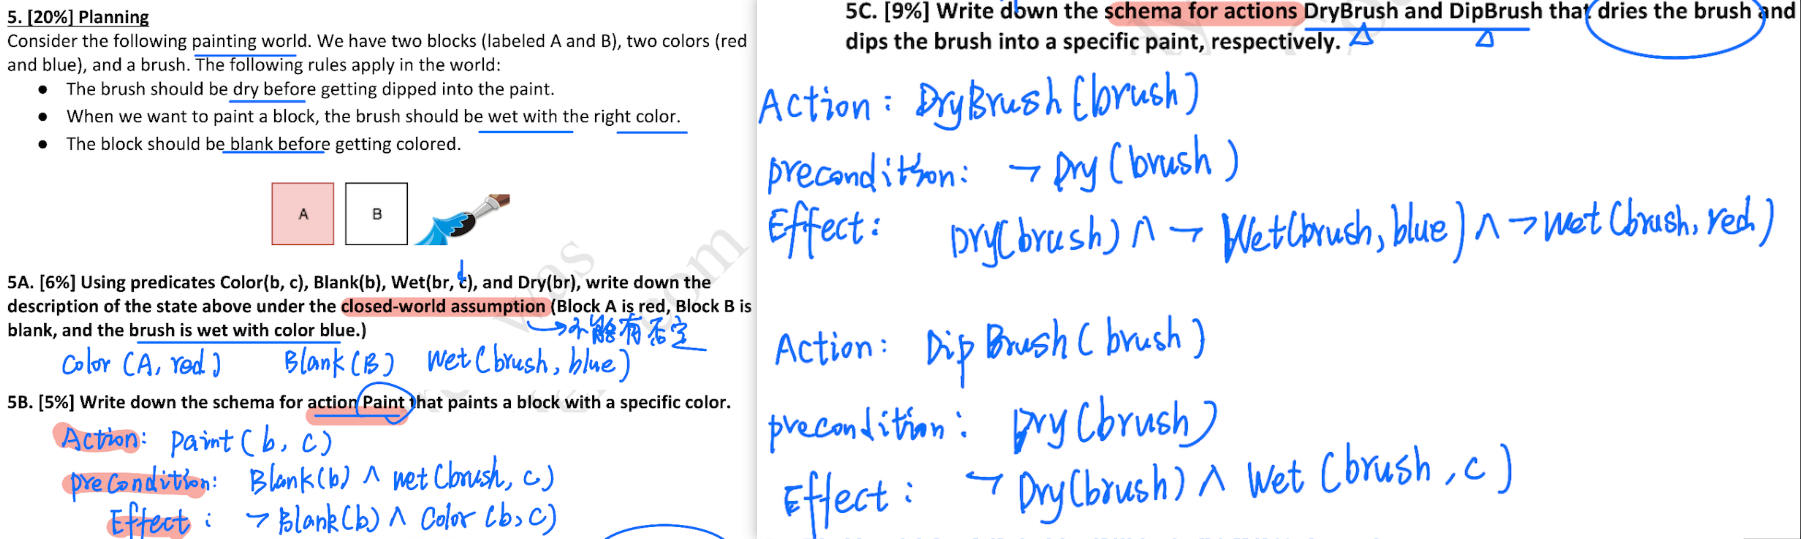 5. [20%] Planning
Consider the following painting world. We have two blocks (labeled A and B), two colors (red
and blue), and a brush. The following rules apply in the world:
● The brush should be dry before getting dipped into the paint.
● When we want to paint a block, the brush should be wet with the right color.
● The block should be blank before getting colored.
A
B
5A. [6%] Using predicates Color(b, c), Blank(b), Wet(br, c), and Dry(br), write down the
description of the state above under the closed-world assumption (Block A is red, Block B is
blank, and the brush is wet with color blue.)
→不能有否定
Color (A, red) Blank (B) wet (brush, blue)
5B. [5%] Write down the schema for action Paint that paints a block with a specific color.
Action: paint (b, c)
preCondition: Blank(b) ∧ wet (brush, c)
Effect: ¬ Blank(b) ∧ Color (b, c)
5C. [9%] Write down the schema for actions DryBrush and DipBrush that dries the brush and
dips the brush into a specific paint, respectively.
Action: DryBrush (brush)
precondition: ¬ Dry (brush)
Effect: Dry(brush) ∧ ¬ Wet(brush, blue) ∧ ¬ wet (brush, red)
Action: Dip Brush ( brush)
precondition: Dry (brush)
Effect: ¬ Dry(brush) ∧ Wet (brush, c)